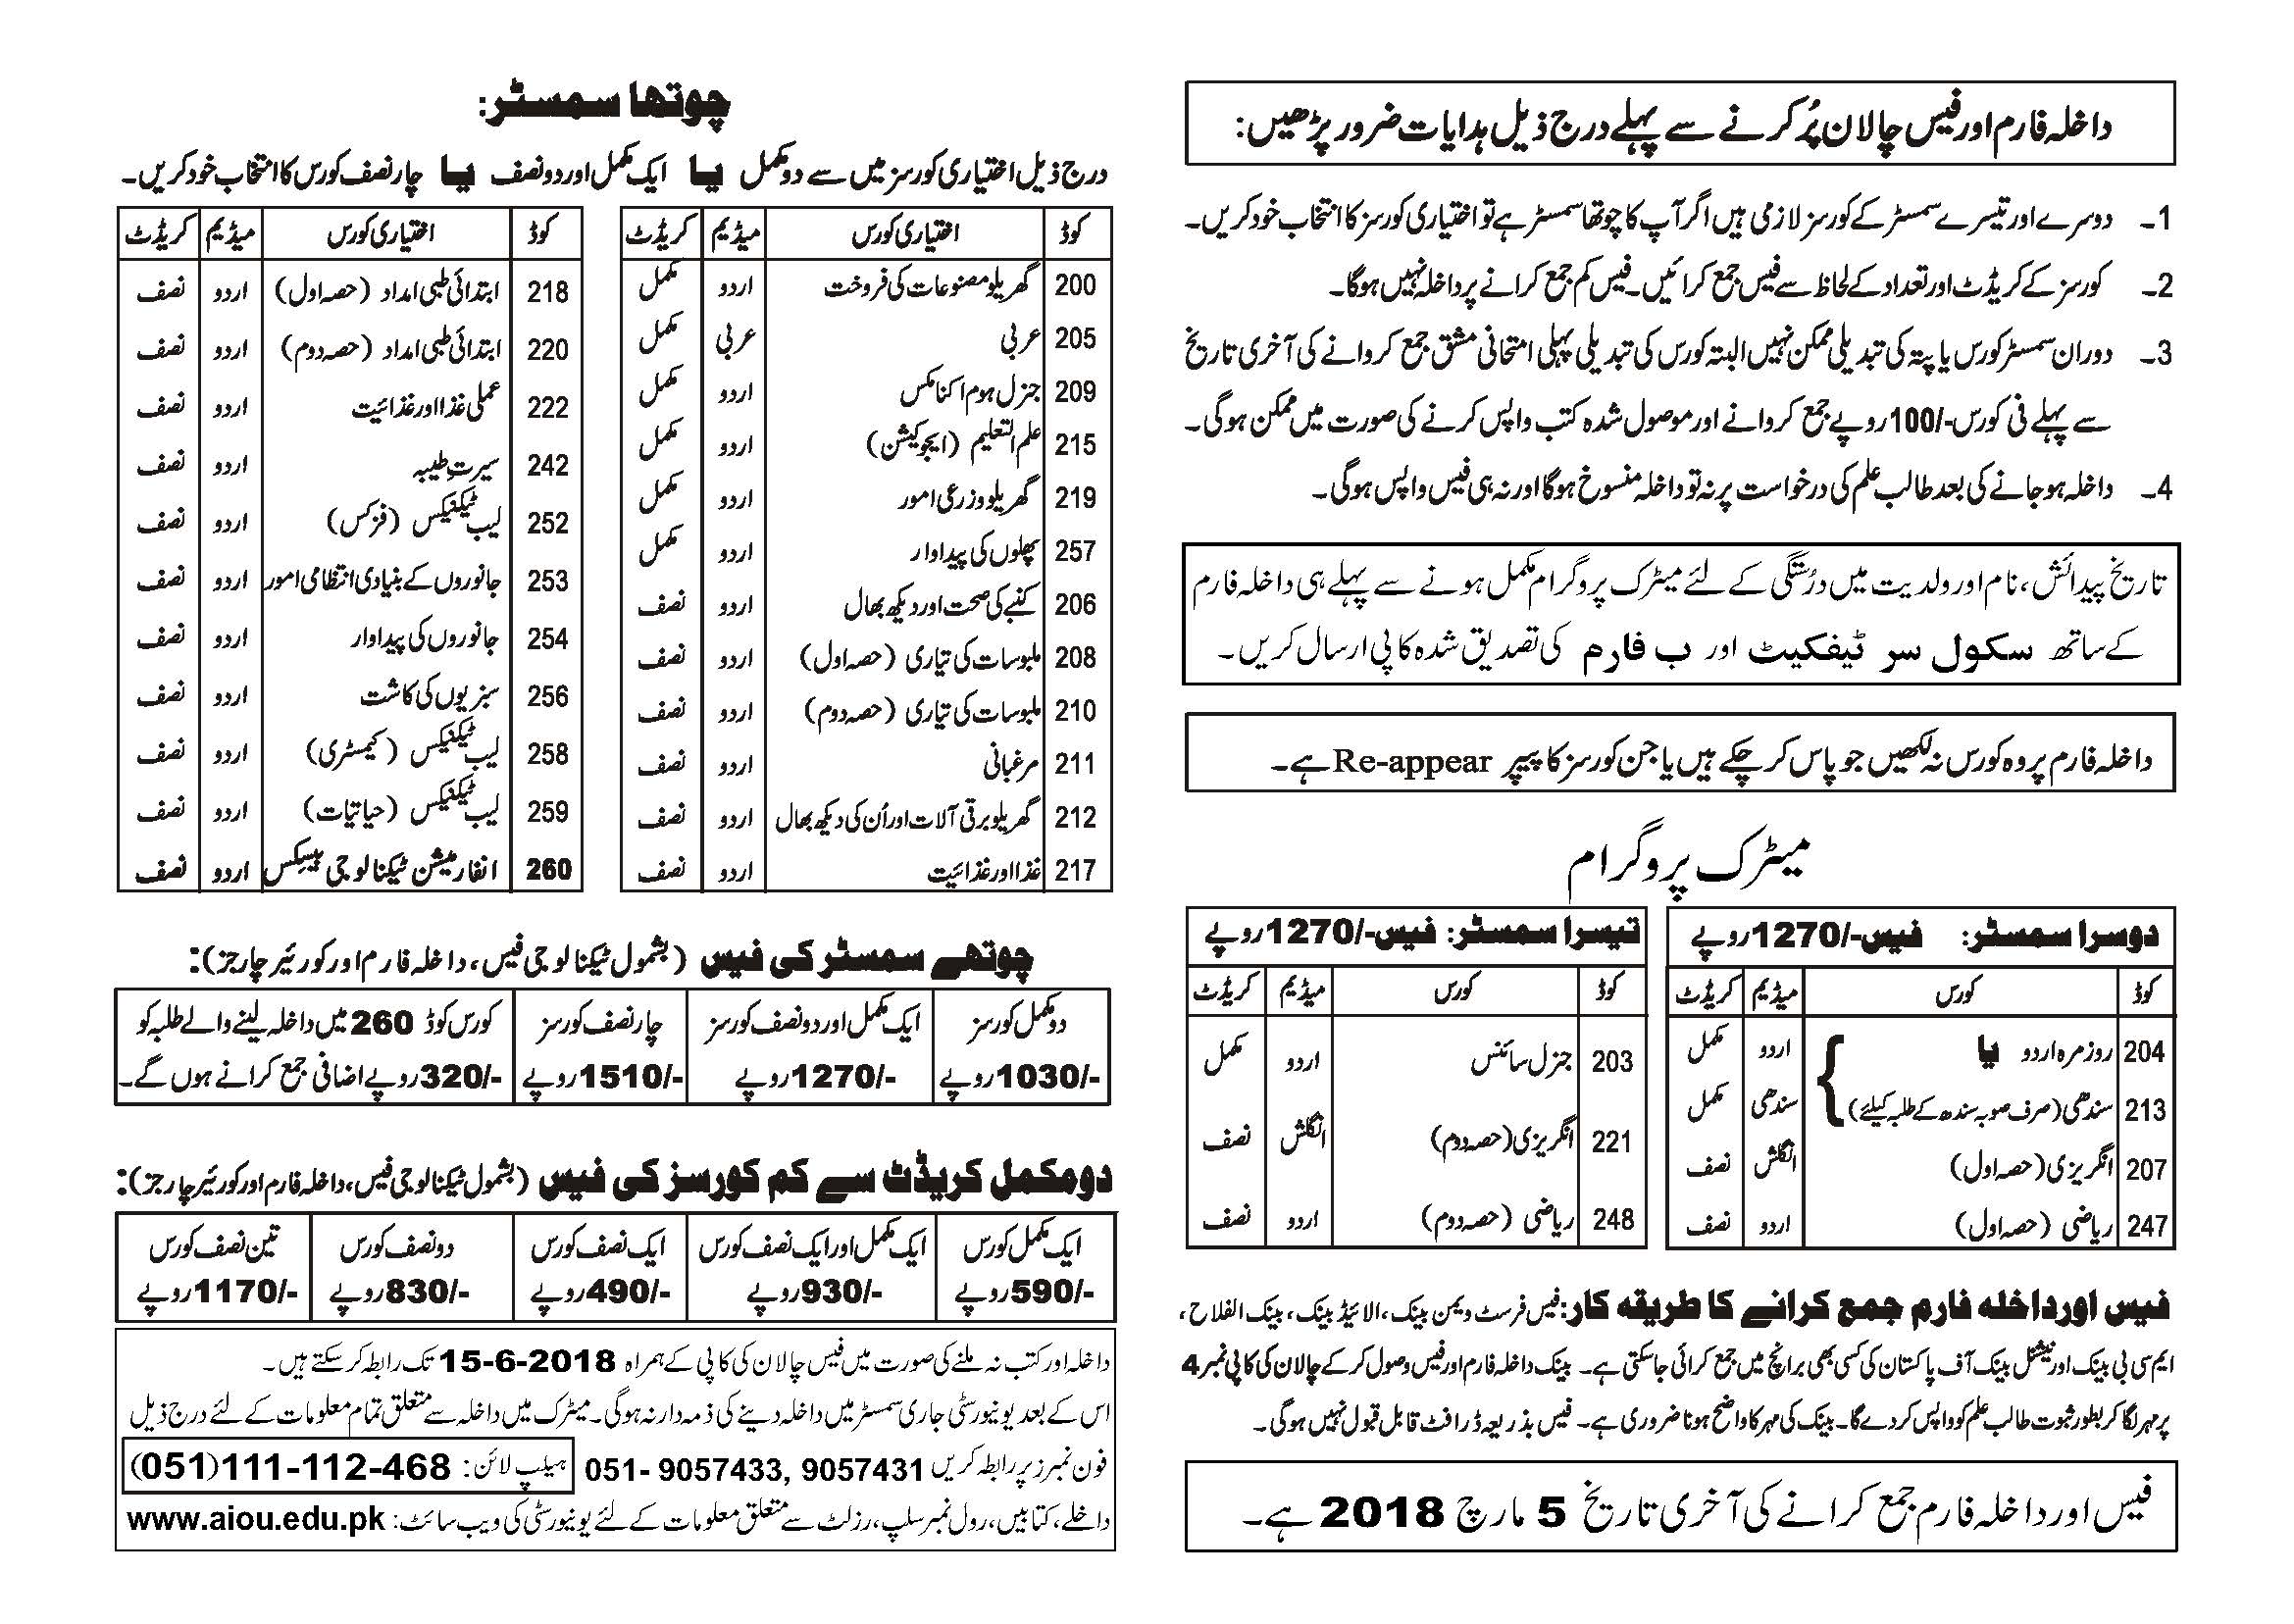 داخلہ فارم اور فیس چالان پُر کرنے سے پہلے درج ذیل ہدایات ضرور پڑھیں:
1۔ دوسرے اور تیسرے سمسٹر کے کورسز لازمی ہیں اگر آپ کا چوتھا سمسٹر ہے تو اختیاری کورسز کا انتخاب خود کریں۔
2۔ کورسز کے کریڈٹ اور تعداد کے لحاظ سے فیس جمع کرائیں۔ فیس کم جمع کرانے پر داخلہ نہیں ہوگا۔
3۔ دوران سمسٹر کورس یا پتہ کی تبدیلی ممکن نہیں البتہ کورس کی تبدیلی پہلی امتحانی مشق جمع کروانے کی آخری تاریخ
سے پہلے فی کورس -/100 روپے جمع کروانے اور موصول شدہ کتب واپس کرنے کی صورت میں ممکن ہوگی۔
4۔ داخلہ ہو جانے کی بعد طالب علم کی درخواست پر نہ تو داخلہ منسوخ ہوگا اور نہ ہی فیس واپس ہوگی۔
تاریخ پیدائش، نام اور ولدیت میں درُستگی کے لئے میٹرک پروگرام مکمل ہونے سے پہلے ہی داخلہ فارم
کے ساتھ سکول سر ٹیفکیٹ اور ب فارم کی تصدیق شدہ کاپی ارسال کریں۔
داخلہ فارم پر وہ کورس نہ لکھیں جو پاس کر چکے ہیں یا جن کورسز کا پیپر Re-appear ہے۔
میٹرک پروگرام
دوسرا سمسٹر: فیس -/1270 روپے
کوڈ کورس میڈیم کریڈٹ
204 روزمرہ اردو یا اردو مکمل
213 سندھی (صرف صوبہ سندھ کے طلبہ کیلئے) سندھی مکمل
207 انگریزی (حصہ اول) انگلش نصف
247 ریاضی (حصہ اول) اردو نصف
تیسرا سمسٹر: فیس -/1270 روپے
کوڈ کورس میڈیم کریڈٹ
203 جنرل سائنس اردو مکمل
221 انگریزی (حصہ دوم) انگلش نصف
248 ریاضی (حصہ دوم) اردو نصف
فیس اور داخلہ فارم جمع کرانے کا طریقہ کار: فیس فرسٹ ویمن بینک، الائیڈ بینک، بینک الفلاح،
ایم سی بی بینک اور نیشنل بینک آف پاکستان کی کسی بھی برانچ میں جمع کرائی جا سکتی ہے۔ بینک داخلہ فارم اور فیس وصول کر کے چالان کی کاپی نمبر 4
پر مہر لگا کر بطور ثبوت طالب علم کو واپس کر دے گا۔ بینک کی مہر کا واضح ہونا ضروری ہے۔ فیس بذریعہ ڈرافٹ قابل قبول نہیں ہوگی۔
فیس اور داخلہ فارم جمع کرانے کی آخری تاریخ 5 مارچ 2018 ہے۔
چوتھا سمسٹر:
درج ذیل اختیاری کورسز میں سے دو مکمل یا ایک مکمل اور دو نصف یا چار نصف کورس کا انتخاب خود کریں۔
کوڈ اختیاری کورس میڈیم کریڈٹ
200 گھریلو مصنوعات کی فروخت اردو مکمل
205 عربی عربی مکمل
209 جنرل ہوم اکنامکس اردو مکمل
215 علم التعلیم (ایجوکیشن) اردو مکمل
219 گھریلو و زرعی امور اردو مکمل
257 پھلوں کی پیداوار اردو مکمل
206 کنبے کی صحت اور دیکھ بھال اردو نصف
208 ملبوسات کی تیاری (حصہ اول) اردو نصف
210 ملبوسات کی تیاری (حصہ دوم) اردو نصف
211 مرغبانی اردو نصف
212 گھریلو برقی آلات اور اُن کی دیکھ بھال اردو نصف
217 غذا اور غذائیت اردو نصف
کوڈ اختیاری کورس میڈیم کریڈٹ
218 ابتدائی طبی امداد (حصہ اول) اردو نصف
220 ابتدائی طبی امداد (حصہ دوم) اردو نصف
222 عملی غذا اور غذائیت اردو نصف
242 سیرتِ طیبہ اردو نصف
252 لیب ٹیکنیکس (فزکس) اردو نصف
253 جانوروں کے بنیادی انتظامی امور اردو نصف
254 جانوروں کی پیداوار اردو نصف
256 سبزیوں کی کاشت اردو نصف
258 لیب ٹیکنیکس (کیمسٹری) اردو نصف
259 لیب ٹیکنیکس (حیاتیات) اردو نصف
260 انفارمیشن ٹیکنالوجی بیسِکس اردو نصف
چوتھے سمسٹر کی فیس (بشمول ٹیکنالوجی فیس، داخلہ فارم اور کورئیر چارجز):
دو مکمل کورسز ایک مکمل اور دو نصف کورسز چار نصف کورسز کورس کوڈ 260 میں داخلہ لینے والے طلبہ کو
-/1030 روپے -/1270 روپے -/1510 روپے -/320 روپے اضافی جمع کرانے ہوں گے۔
دو مکمل کریڈٹ سے کم کورسز کی فیس (بشمول ٹیکنالوجی فیس، داخلہ فارم اور کورئیر چارجز):
ایک مکمل کورس ایک مکمل اور ایک نصف کورس ایک نصف کورس دو نصف کورس تین نصف کورس
-/590 روپے -/930 روپے -/490 روپے -/830 روپے -/1170 روپے
داخلہ اور کتب نہ ملنے کی صورت میں فیس چالان کی کاپی کے ہمراہ 15-6-2018 تک رابطہ کر سکتے ہیں۔
اس کے بعد یونیورسٹی جاری سمسٹر میں داخلہ دینے کی ذمہ دار نہ ہوگی۔ میٹرک میں داخلہ سے متعلق تمام معلومات کے لئے درج ذیل
فون نمبرز پر رابطہ کریں 051- 9057433, 9057431 ہیلپ لائن: (051)111-112-468
داخلے، کتابیں، رول نمبر سلپ، رزلٹ سے متعلق معلومات کے لئے یونیورسٹی کی ویب سائٹ: www.aiou.edu.pk